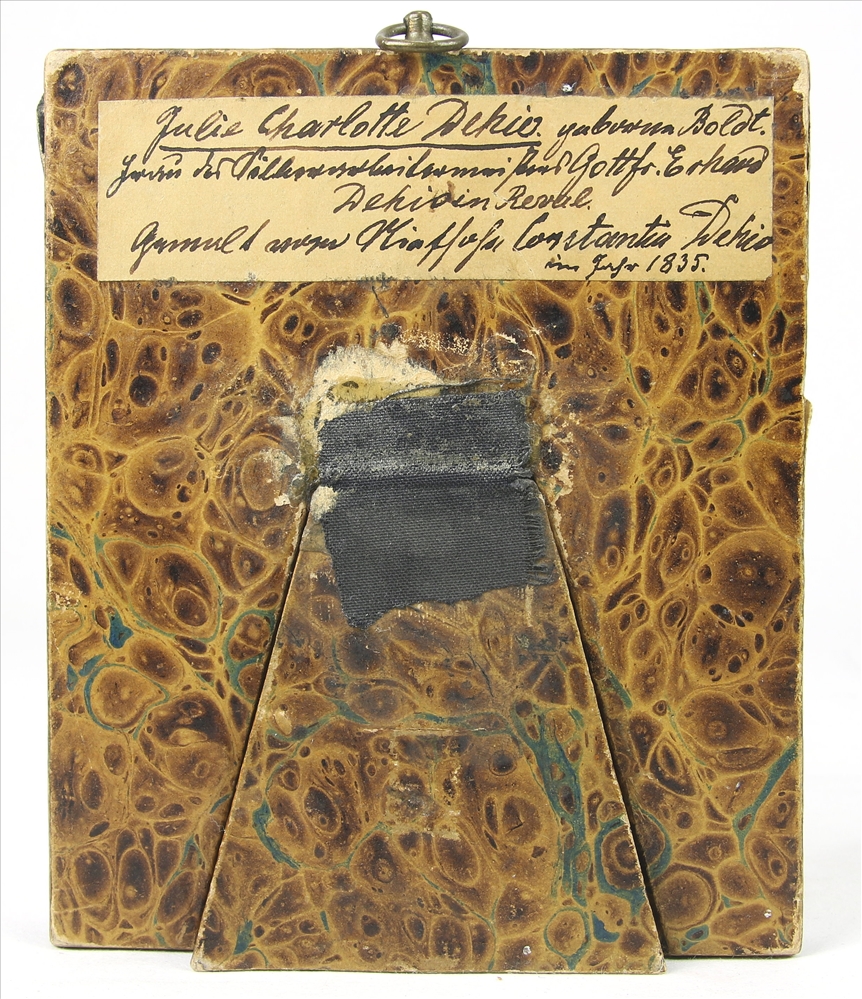 Julie Charlotte Dehio. geborne Boldt.
Frau des Silberarbeitermeisters Gottfr. Erhard
Dehio in Reval.
Gemalt vom Constantin Dehio
im Jahr 1835.